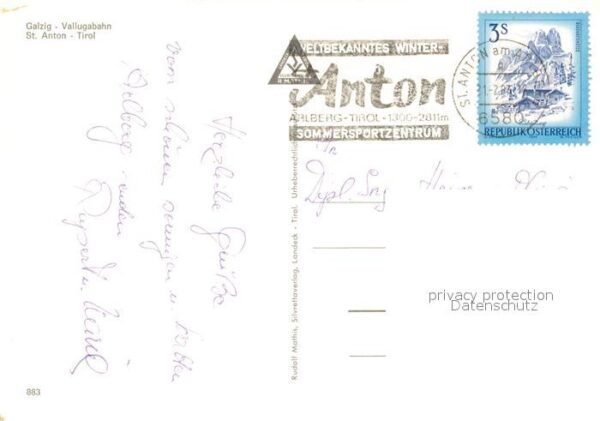 Galzig - Vallugabahn
St. Anton - Tirol
WELTBEKANNTES WINTER-
Anton
ARLBERG-TIROL-1300-2811m
SOMMERSPORTZENTRUM
ST. ANTON am
6580
3S
REPUBLIK ÖSTERREICH
Herzliche Grüße
vom schönen sonnigen u.
Arlberg senden
Rudolf Mathis, Silvrettaverlag, Landeck - Tirol. Urheberrechtlich
Dipl. Ing
privacy protection
Datenschutz
883